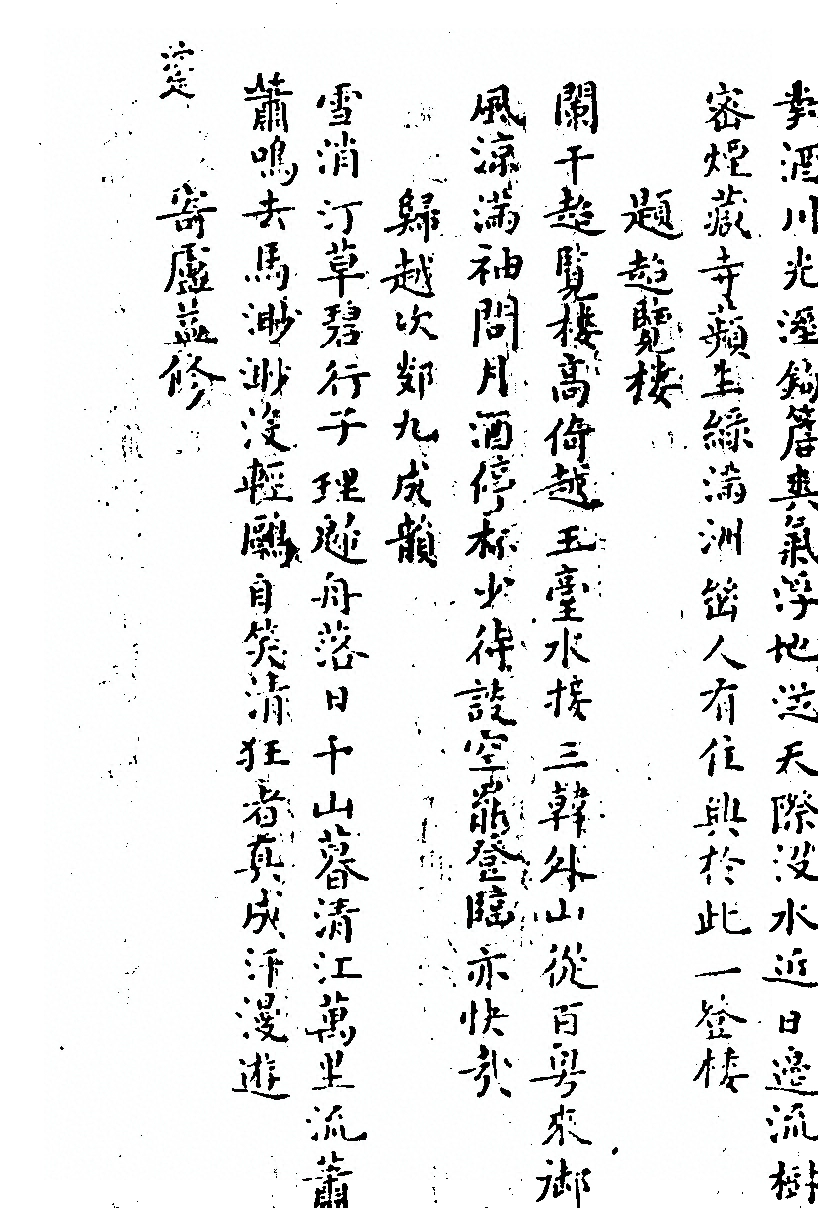 對酒川光溼鉤簷爽氣浮地從天際沒水近日邊流樹
密煙藏寺蘋生綠滿洲幽人有佳興於此一登樓
題超覽樓
闌干超覽樓高倚越王臺水接三韓外山從百粵來御
風涼滿袖問月酒停杯少待談空罷登臨亦快哉
歸越次郯九成韻
雪消汀草碧行子理歸舟落日千山暮清江萬里流蕭
蕭鳴去馬渺渺沒輕鷗自笑清狂者真成汗漫遊
寄盧益修